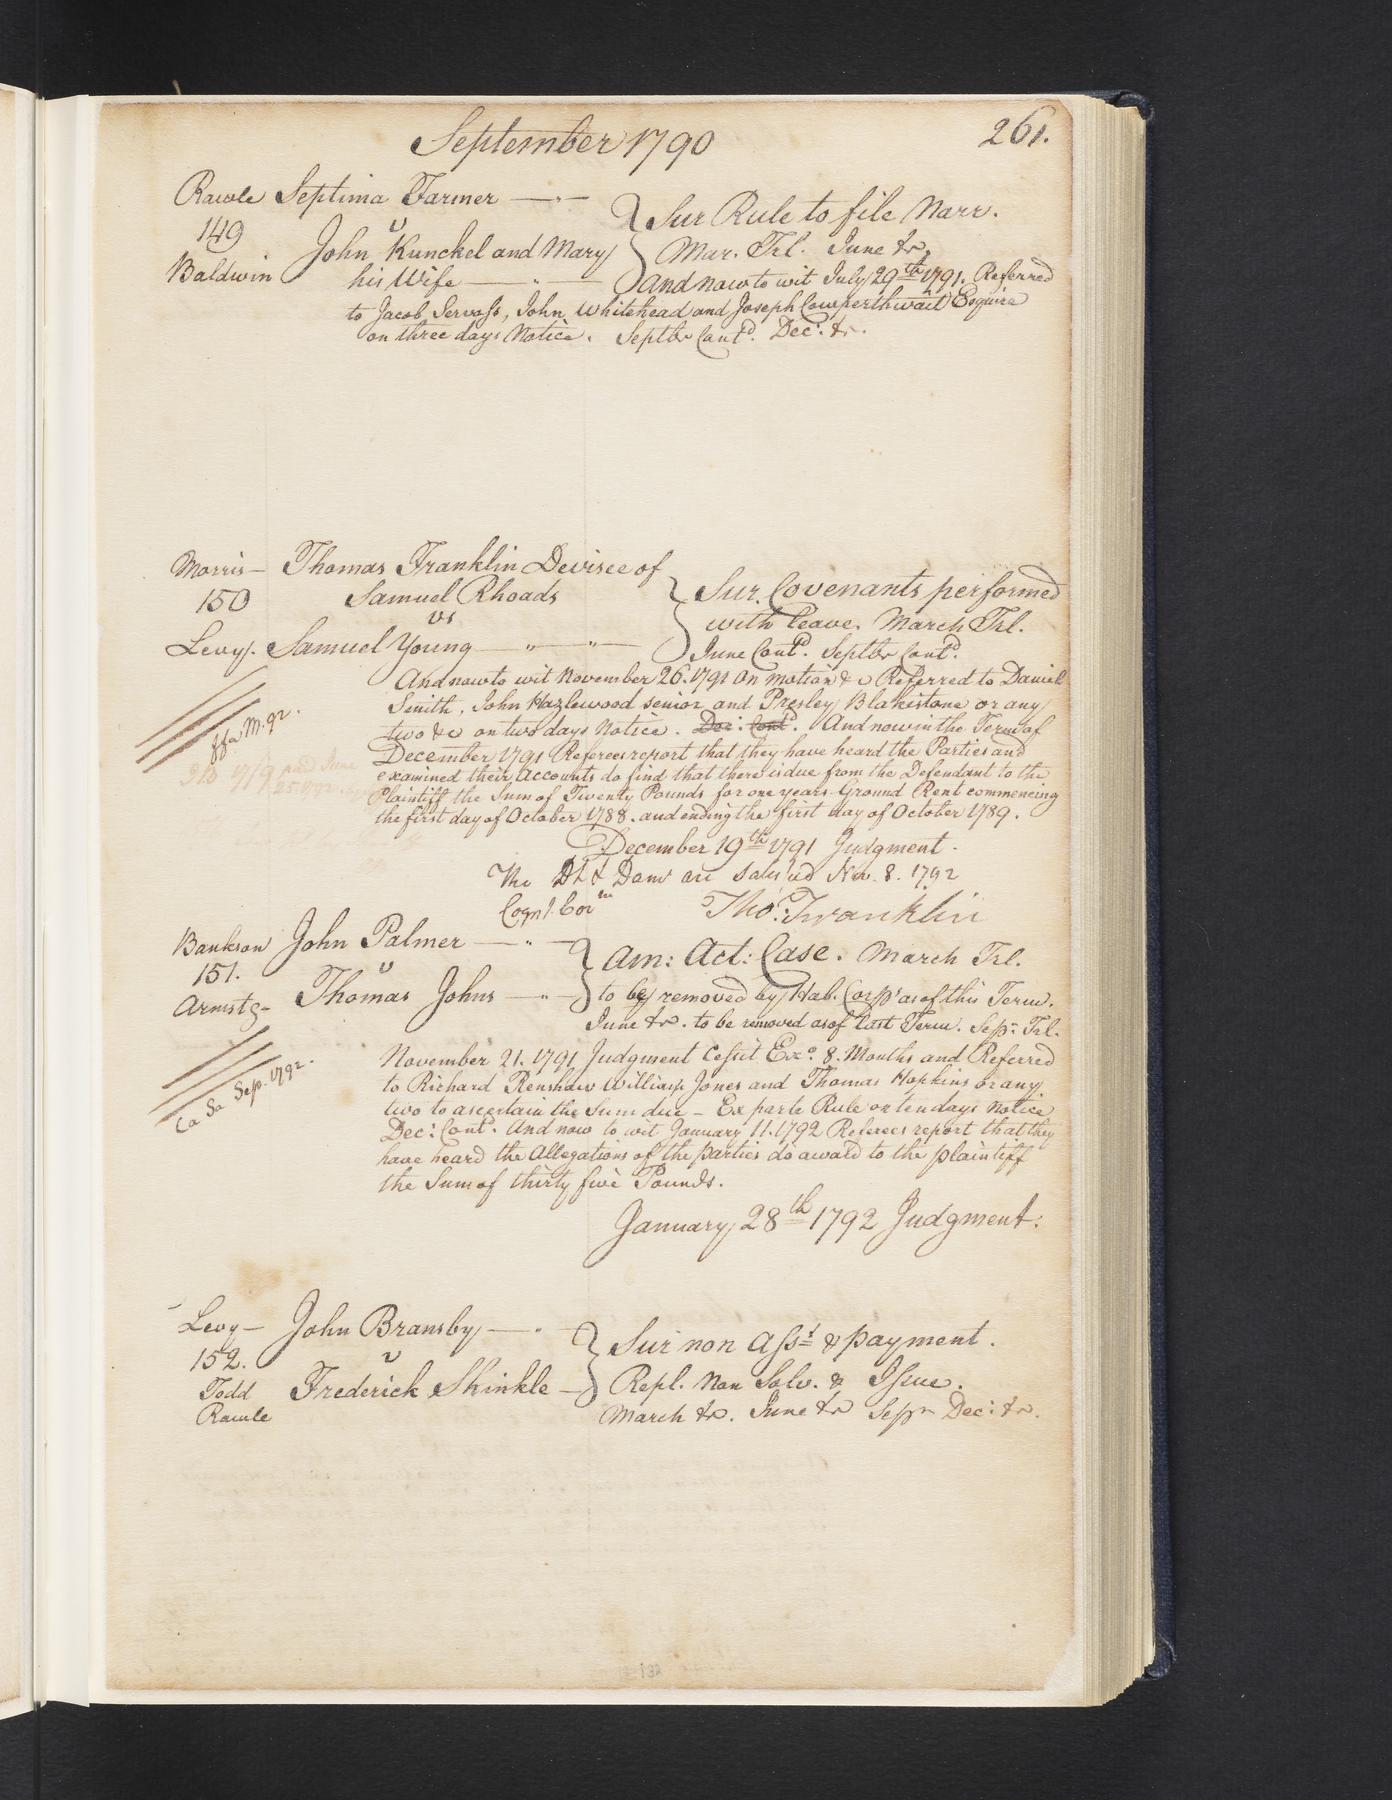 September 1790
261.
Rawle Septima Farmer
149 v
Baldwin John Kunckel and Mary
his Wife
Sur Rule to file Narr.
Mar. Trl. June &c.
And now to wit July 29th 1791. Referred
to Jacob Servoss, John Whitehead and Joseph Cowperthwait Esquire
on three days Notice. Septbr Contd. Dec: &c.
Morris Thomas Franklin Devisee of
150 Samuel Rhoads
vs
Levy. Samuel Young
Sur. Covenants performed
with leave. March Trl.
June Contd. Septbr Contd.
And now to wit November 26. 1791 On motion &c Referred to Daniel
Smith, John Hazlewood senior and Presley Blakistone or any
two &c on two days Notice. Dec: Contd. And now in the Term of
December 1791 Referees report that they have heard the Parties and
examined their Accounts do find that there is due from the Defendant to the
Plaintiff the Sum of Twenty Pounds for one years Ground Rent commencing
the first day of October 1788. and ending the first day of October 1789.
ffa M. 92.
paid June
December 19th 1791 Judgment.
The Dt & Dam are satisfied Nov. 8. 1792
Thos: Franklin
Bankson John Palmer
151. v
Armstg Thomas Johns
Am: Act: Case. March Trl.
to be removed by Hab. Corps as of this Term.
June &c. to be removed as of last Term. Sepr Trl.
November 21. 1791 Judgment Cessit Exo. 8. Months and Referred
to Richard Renshaw William Jones and Thomas Hopkins or any
two to ascertain the Sum due - Ex parte Rule on ten days Notice
Dec: Contd. And now to wit January 11. 1792 Referees report that they
have heard the Allegations of the parties do award to the plaintiff
the Sum of thirty five Pounds.
Ca Sa Sep. 1792.
January 28th 1792 Judgment.
Levy John Bransby
152. v
Todd Frederick Shinkle
Rawle
Sur non Asst & payment.
Repl. Non Solv. & Issue.
March &c. June &c Sepr Dec: &c.
132